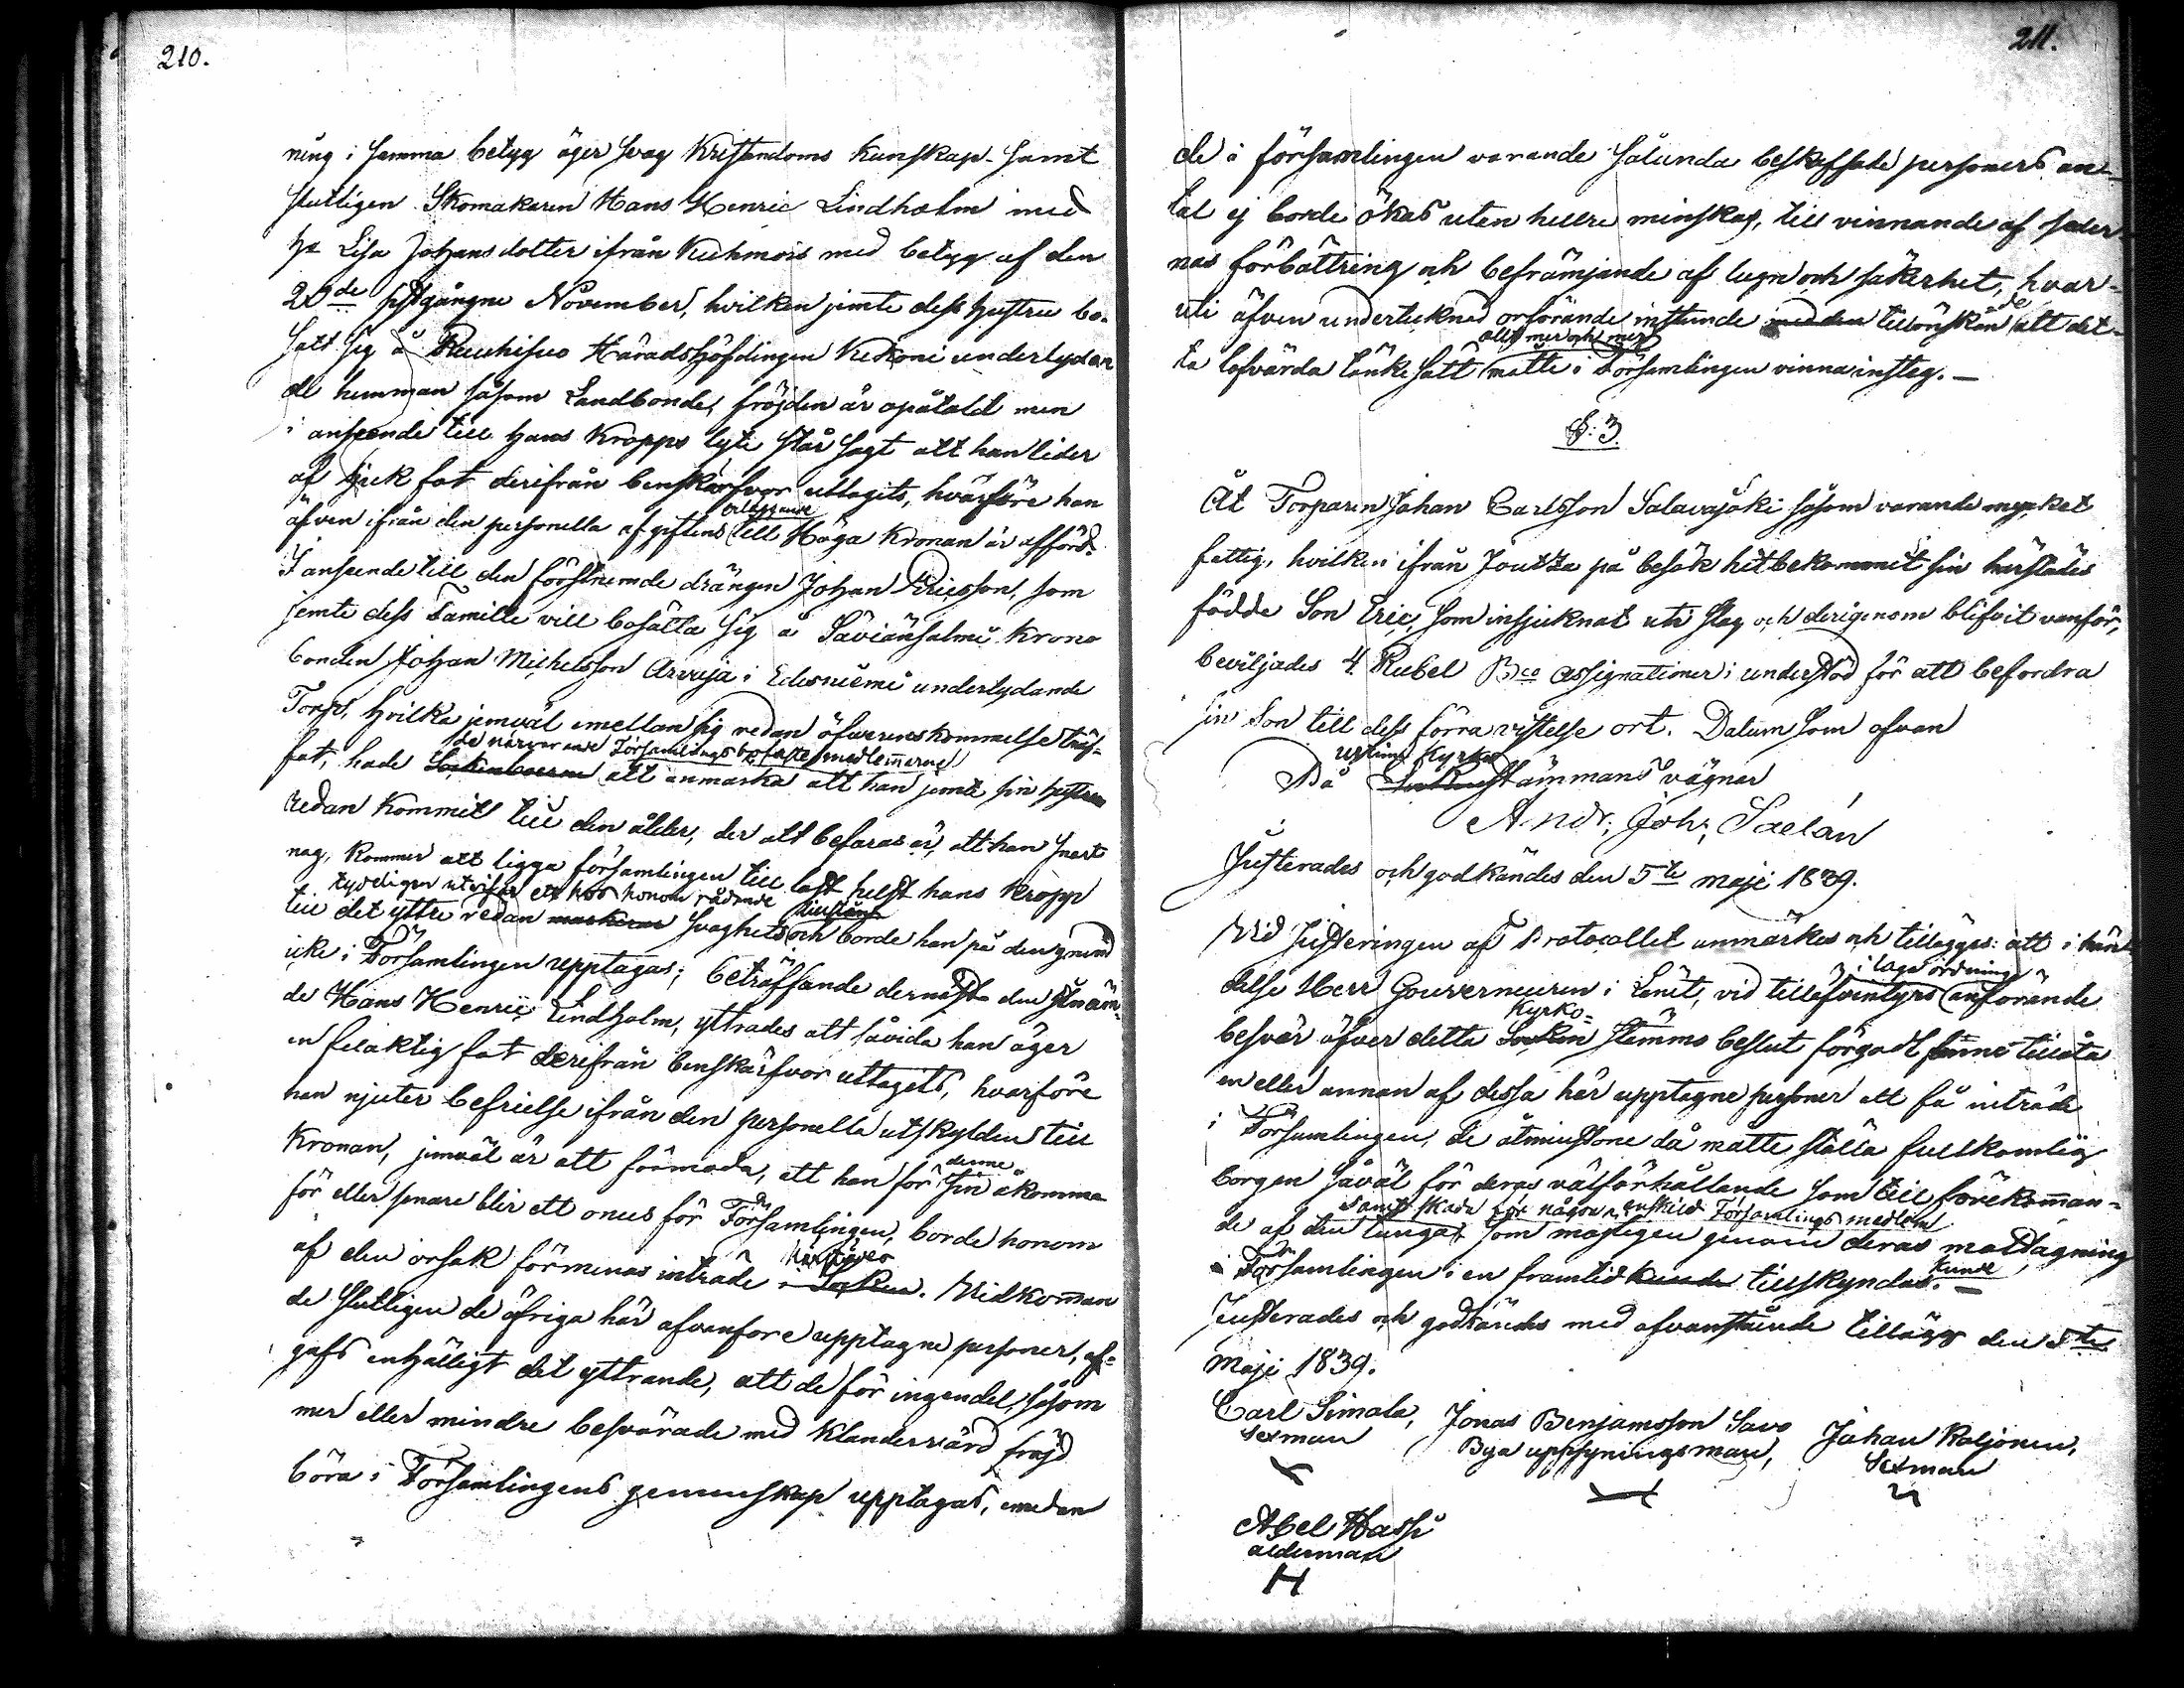 210.
ning i samma betyg äger svag Kristendoms Kunskap samt
slutligen Skomakaren Hans Henric Lindholm med
h: Lisa Johansdotter ifrån Kuhmois med betyg af den
20de sistgångne November, hvilken jemte dess hustru bo-
satt sig å Ruuhisuo Häradshöfdingen underlydan
de hemman såsom Landbonde, fröjden är opåtald men
i anseende till hans Kropps lyte står sagt att han lider
af sjuk fot derifrån benskärfvor uttagits, hvarföre han
åliggande
äfven ifrån den personella afgiftens till Höga Kronan är afförd.
I anseende till den förstnemde drängen Johan Ericsson, som
jemte dess Famille vill bosätta sig å Säviänsalmi Krono
bonden Johan Michelsson Arvaja i Edesniemi underlydande
Torp, hvilka jemväl emellan sig redan öfverenskommelse träf-
de närvarande Församlings besuttne medlemmerne
fat, hade Sockenboerne att anmärka att han jemte sin hustru
redan kommit till den ålder, der att befaras är, att han snart
nog, kommer att ligga församlingen till last helst hans Kropp
tydeligen utvisar ett hos honom rådande tillstånd
till det yttre redan markerar svaghets och borde han på den grund
icke i Församlingen upptagas; beträffande dernäst den sistnäm-
de Hans Henric Lindholm, yttrades att såvida han äger
en felaktig fot derifrån benskärfvor uttagits, hvarföre
han njuter befrielse ifrån den personella utskylden till
Kronan, jemväl är att förmoda, att han för denne sin åkomma
för eller senare blir ett onus för Församlingen, borde honom
härstädes
af den orsak förmenas inträde i Socken. Vidkomman
de slutligen de öfriga här ofvanföre upptagne personer, af-
gafs enhälligt det yttrande, att de för ingen del, såsom
mer eller mindre besvärade med klandervärd frejd
böra i Församlingens gemenskap upptagas, emedan
211.
de i församlingen varande sålunda beskaffade personers an-
tal ej borde ökas uten hellre minskas, till vinnande af seder-
nas förbättring och befrämjande af lugn och säkerhet, hvar-
uti äfven undertecknad orförande instemde med den tillönskande att det-
allt mer och mer
ta lofvärda tänkesätt måtte i Församlingen vinna insteg.
§: 3.
Åt Torparen Johan Carlsson Salavajöki såsom varande mycket
fattig, hvilken ifrån Joutza på besök hitbekommit sin härstädes
födde Son Eric, som insjuknat uti slag och derigenom blifvit vanför,
beviljades 4 Rubel Bco Assignationer i understöd för att befordra
sin Son till dess förra vistelse ort. Datum som ofvan
Kyrko
På Sockenstämmans vägnar
Andr: Joh: Saelán
Justerades och godkändes den 5te maji 1839.
Vid Justeringen af Protocollet anmärkes och tillägges: att i hän-
delse Herr Gouverneuren i Länet, vid tilläfventyrs i laga ordning anförande
Kyrko-
besvär öfver detta Socken stämmo beslut förgodt funne tillåta
en eller annan af dessa här upptagne personer att få inträde
i Församlingen, de åtminstone då måtte ställa fullkomlig
borgen såväl för deras välförhållande som till förekomman-
samt skada för någon enskild Församlings medlem
de af den tunga, som möjligen genom deras mottagning
i Församlingen i en framtid kunde tillskyndas. kunde
Justerades och godkändes med ofvanstående tillägg den 5te
Maji 1839.
Carl Simola, Jonas Benjamsson Savo Johan Roljonen,
Sexman Bya uppsyningsman, Sexman
Abel Hassi
ålderman
H